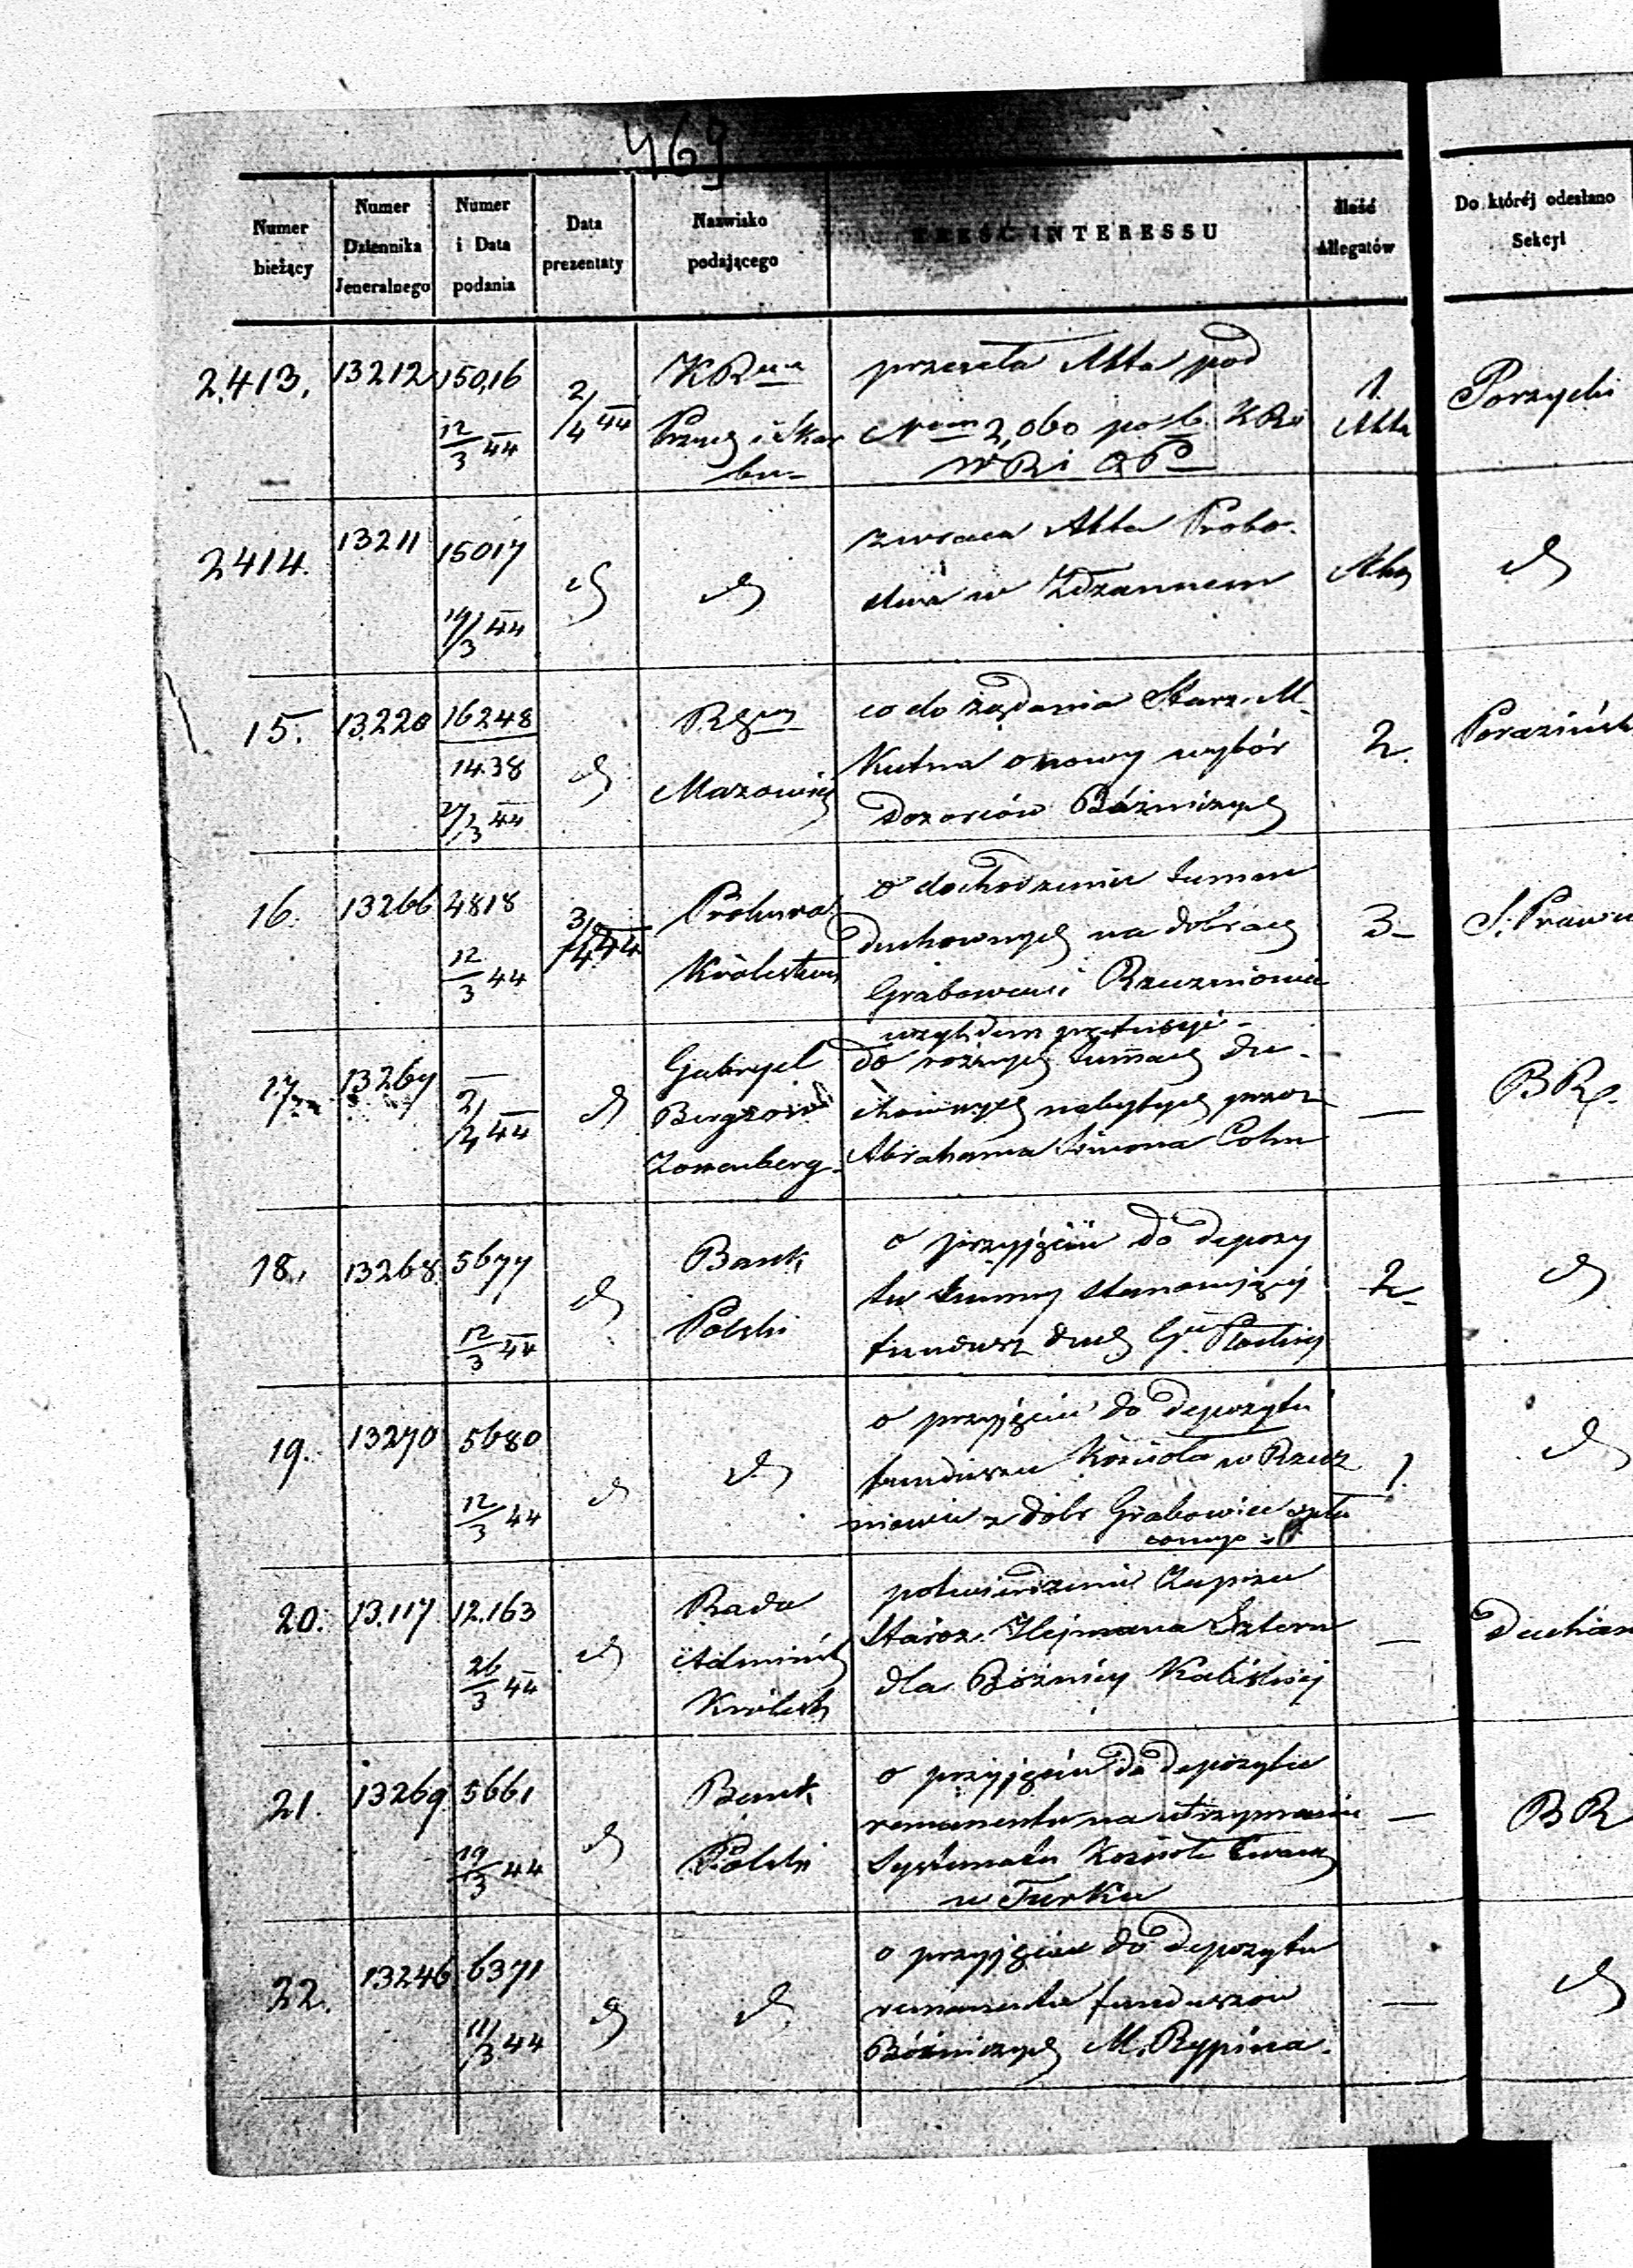 469
Numer bieżący
Numer Dziennika Jeneralnego
Numer i Data podania
Data prezentaty
Nazwisko podającego
TREŚĆ INTERESSU
Ilość Allegatów
Do któréj odesłano Sekcyi
2,413. 13212 15016 12/3 44 2/4 44
przeseła Akta pod
2,060
1.
Akta
2414. 13211 15017 19/3 44
zwraca Akta Probo-
stwa w Zdżannem
Akta
15. 13220 16248 1438 27/3 44
Mazowiec
co do żądania Starz. M.
Kutna o nowy wybór
Dozorców Bóżniczych
2.
16. 13266 4818 12/3 44 3/4 44
Królestwa
o dochodzenie summ
duchownych na dobrach
Grabowiec i Rzeczniowie
3-
17. 13267 2/4 44
Gabryel
Zonenberg
względem pretensyi
do rożnych summ du-
chownych nabytych przez
Abrahama Simona Cohn
—
BR.
18. 13268 5677 12/3 44
Bank
Polski
o przyjęciu do depozy
tu summy stanowiącej
fundusz
2-
19. 13270 5680 12/3 44
o przyjęciu do depozytu
funduszu Kościoła w Rzecz
niowie z dóbr Grabowiec
1.
20. 13.117 12.163 26/3 44
Rada
Administ
Królest
potwierdzenie Zapisu
Staroz. Hejmana Sztern
dla Bóżnicy Kaliskiej
—
21. 13269 5661 19/3 44
Bank
Polski
o przyjęciu do depozytu
remanentu na utrzymanie
w Turku
—
BR
22. 13246 6371 11/3 44
o przyjęciu do depozytu
remanentu funduszów
Bóżniczych M. Rypina.
—